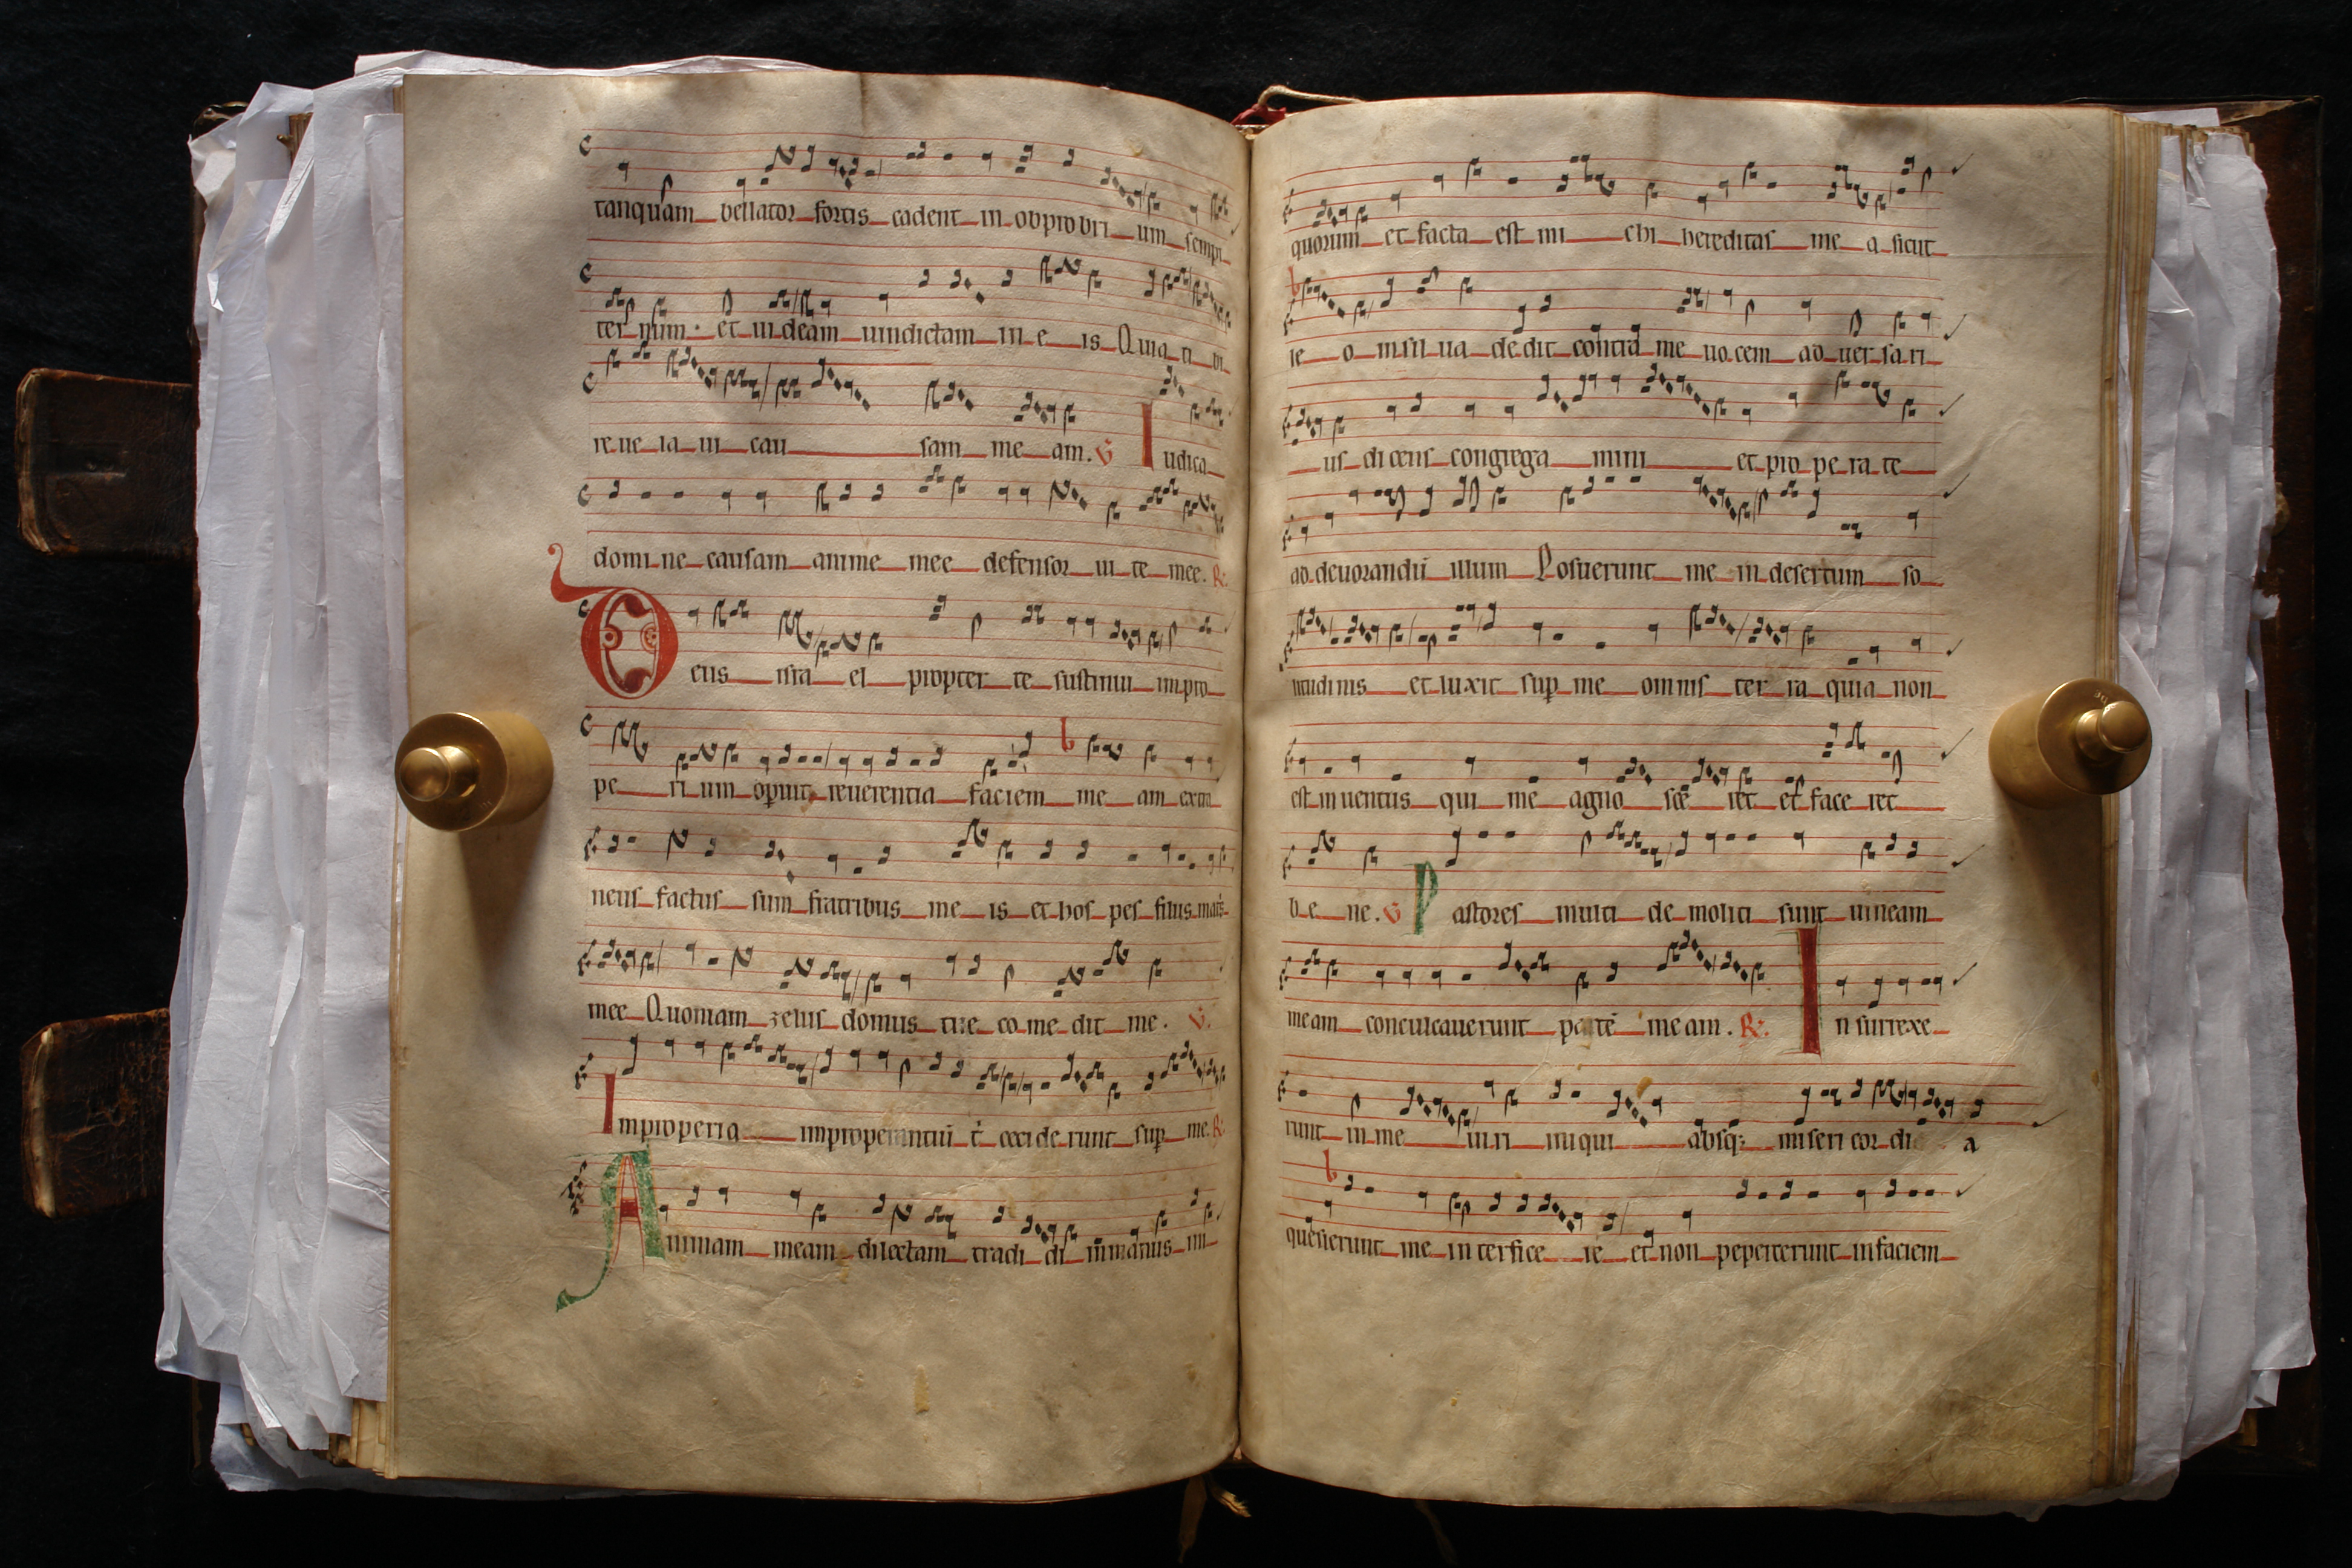 tanquam bellator fortis cadent in obprobri um sempi
ter num. et ui deam uindictam in e is Quia ti bi
re ue la ui cau sam me am. V Iudica
domi ne causam anime mee defensor ui te mee. R.
Deus isra el propter te sustinui impro
pe ri um operuit reuerentia faciem me am extra
neus factus sum fratribus me is et hos pes filiis matris
mee Quoniam zelus domus tue co me dit me. V.
Improperia improperantium t cecide runt sup me. R.
Animam meam dilectam tradi di in manus ini
quorum et facta est mi chi hereditas me a sicut
le o in sil ua de dit contra me uo cem ad uer sa ri
us di cens congrega mini et pro pe ra te
ad deuorandū illum Posuerunt me in desertum so
litudi nis et luxit sup me omnis ter ra quia non
est in uentus qui me agno sce ret et face ret
be ne. V Pastores multi de moliti sunt uineam
meam conculcauerunt partē meam. R. Insurrexe
runt in me ui ri iniqui absq; miseri cor di a
quesierunt me in terfice re et non pepercerunt in faciem